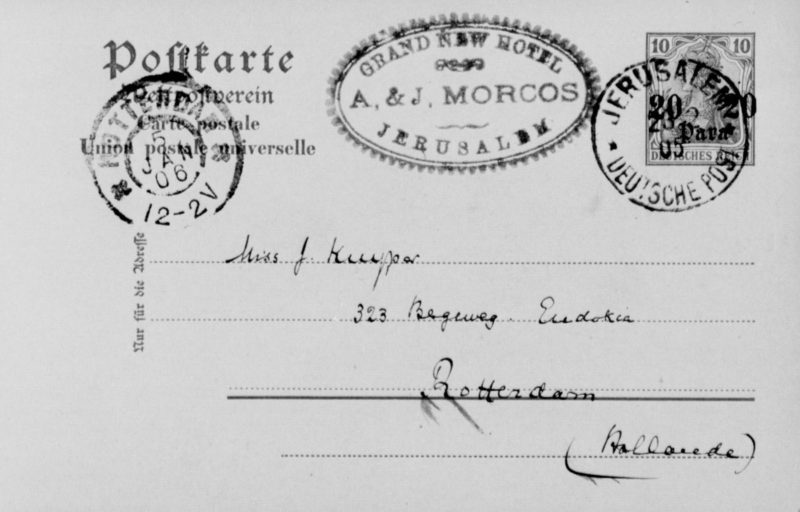 Postkarte
Weltpostverein
Carte postale
Union postale universelle
ROTTERDAM
5
JAN
06
12-2V
GRAND NEW HOTEL
A. & J. MORCOS
JERUSALEM
10 10
20 20
Para
DEUTSCHES REICH
JERUSALEM
05
DEUTSCHE POST
Nur für die Adresse
Miss J. Kuyper
323 Bergweg. Eudokia
Rotterdam
(Hollande)